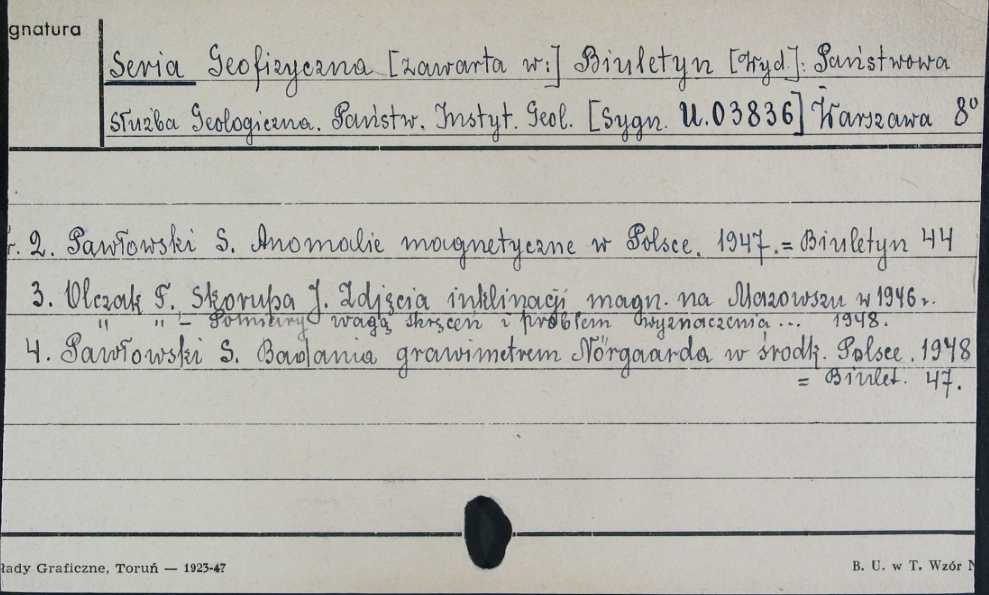 gnatura
Seria Geofizyczna [zawarta w:] Biuletyn [Wyd]: Państwowa
Służba Geologiczna. Państw. Instyt. Geol. [Sygn. U.03836] Warszawa 8°
r. 2. Pawłowski S. Anomalie magnetyczne w Polsce. 1947. = Biuletyn 44
3. Olczak F. Skorupa J. Zdjęcia inklinacji magn. na Mazowszu w 1946 r.
" " – Pomiary wagą skręceń i problem wyznaczenia ... 1948.
4. Pawłowski S. Badania grawimetrem Nörgaarda w środk. Polsce. 1948
= Biulet. 47.
łady Graficzne, Toruń — 1923-47
B. U. w T. Wzór N